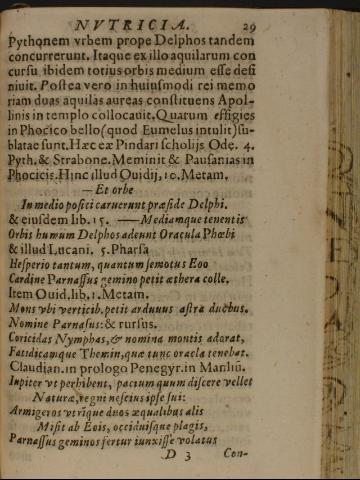 NVTRICIA. 29
Pythonem vrbem prope Delphos tandem
concurrerunt. Itaque ex illo aquilarum con
cursu ibidem totius orbis medium esse defi
niuit. Postea vero in huiusmodi rei memo
riam duas aquilas aureas constituens Apol-
linis in templo collocauit. Quarum effigies
in Phocico bello (quod Eumelus intulit) su-
blatae sunt. Hæc ex Pindari scholijs Ode. 4.
Pyth. & Strabone. Meminit & Pausanias in
Phocicis. Hinc illud Ouidij, 10. Metam.
— Et orbe
In medio positi caruerunt præside Delphi.
& eiusdem lib. 15. — Mediamque tenentis
Orbis humum Delphos adeunt Oracula Phœbi
& illud Lucani. 5. Pharsa
Hesperio tantum, quantum semotus Eoo
Cardine Parnassus gemino petit æthera colle.
Item Ouid. lib. 1. Metam.
Mons vbi verticib. petit arduus astra duobus.
Nomine Parnasus: & rursus.
Coricidas Nymphas, & nomina montis adorat,
Fatidicamque Themin, quæ tunc oracla tenebat.
Claudian. in prologo Penegyr. in Manliũ.
Iupiter vt perhibent, pacium quum discere vellet
Naturæ, regni nescius ipse sui:
Armigeros vtrique duos æqualibus alis
Misit ab Eois, occiduisque plagis,
Parnassus geminos fertur iunxisse volatus
D 3 Con-